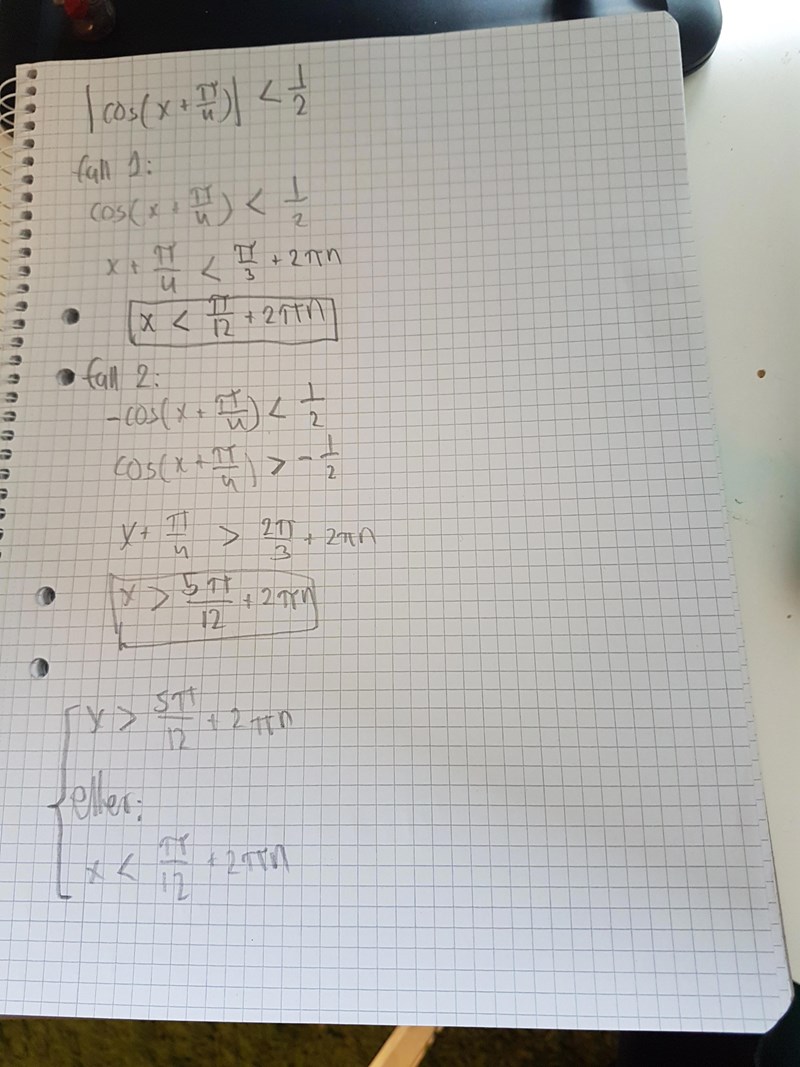 |cos(x + π/4)| < 1/2
fall 1:
cos(x + π/4) < 1/2
x + π/4 < π/3 + 2πn
x < π/12 + 2πn
fall 2:
-cos(x + π/4) < 1/2
cos(x + π/4) > -1/2
x + π/4 > 2π/3 + 2πn
x > 5π/12 + 2πn
x > 5π/12 + 2πn
eller:
x < π/12 + 2πn